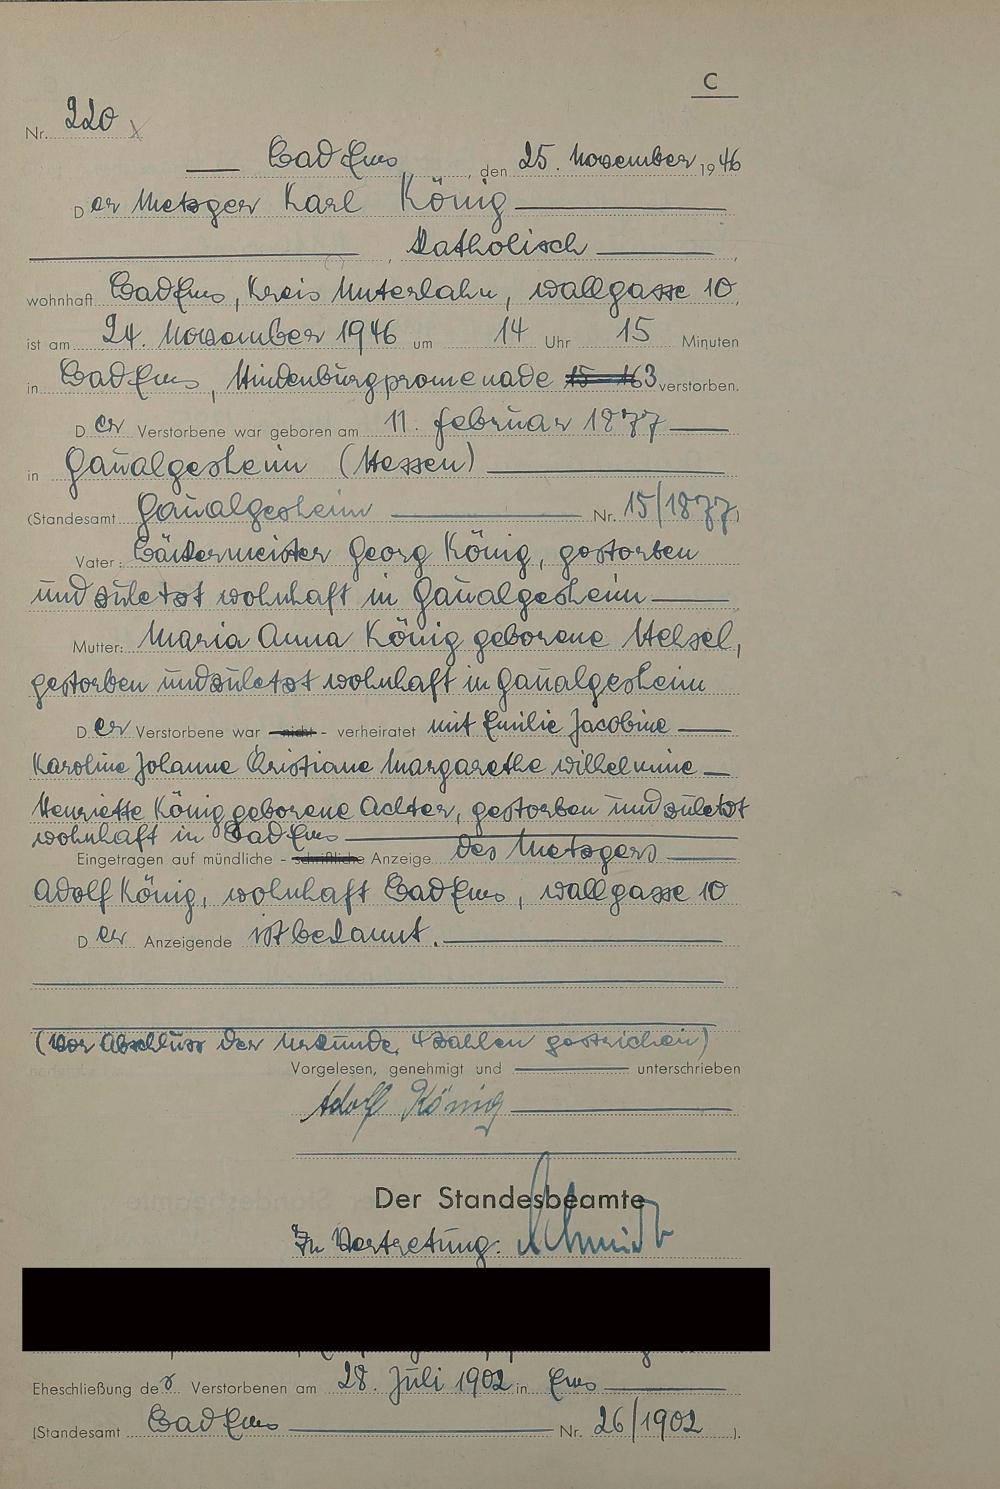 C
Nr. 220
Bad Ems, den 25. November 1946
Der Metzger Karl König
, katholisch,
wohnhaft Bad Ems, Kreis Unterlahn, Wallgasse 10,
ist am 24. November 1946 um 14 Uhr 15 Minuten
in Bad Ems, Hindenburgpromenade 3 verstorben.
Der Verstorbene war geboren am 11. Februar 1877
in Gaualgesheim (Hessen)
(Standesamt Gaualgesheim Nr. 15/1877)
Vater: Bäckermeister Georg König, gestorben
und zuletzt wohnhaft in Gaualgesheim
Mutter: Maria Anna König geborene Hessel,
gestorben und zuletzt wohnhaft in Gaualgesheim
Der Verstorbene war - nicht - verheiratet mit Emilie Jacobine
Karoline Johanne Christiane Margarethe Wilhelmine
Henriette König geborene Achter, gestorben und zuletzt
wohnhaft in Bad Ems
Eingetragen auf mündliche - schriftliche Anzeige des Metzgers
Adolf König, wohnhaft Bad Ems, Wallgasse 10
Der Anzeigende ist bekannt.
(Vor Abschluss der Urkunde 4 Zahlen gestrichen)
Vorgelesen, genehmigt und unterschrieben
Adolf König
Der Standesbeamte
In Vertretung: Schmidt
Eheschließung der Verstorbenen am 28. Juli 1902 in Ems
(Standesamt Bad Ems Nr. 26/1902).